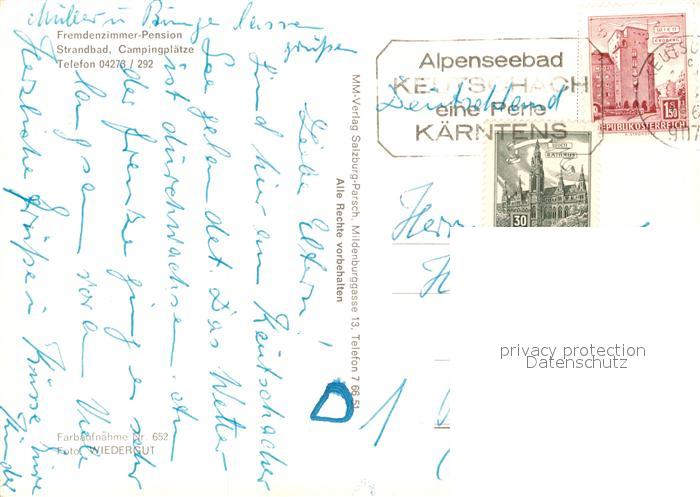 Müller u Bunge lassen
grüßen
Fremdenzimmer-Pension
Strandbad, Campingplätze
Telefon 04273 / 292
Liebe Eltern!
Sind hier am Keutschacher
See gelandet. Das Wetter
ist durchwachsen. An
der Grenze ging es sehr
langsam voran. Viele
Herzliche Grüße u Küsse Eure
Kinder
Farbaufnahme Nr. 652
Foto: WIEDERGUT
MM-Verlag Salzburg-Parsch, Mildenburggasse 13, Telefon 7 66 51
Alle Rechte vorbehalten
Alpenseebad
KEUTSCHACH
eine Perle
KÄRNTENS
Deutschland
WIEN
ERDBERG
1.50
REPUBLIK ÖSTERREICH
WIEN
RATHAUS
30
Herrn
privacy protection
Datenschutz